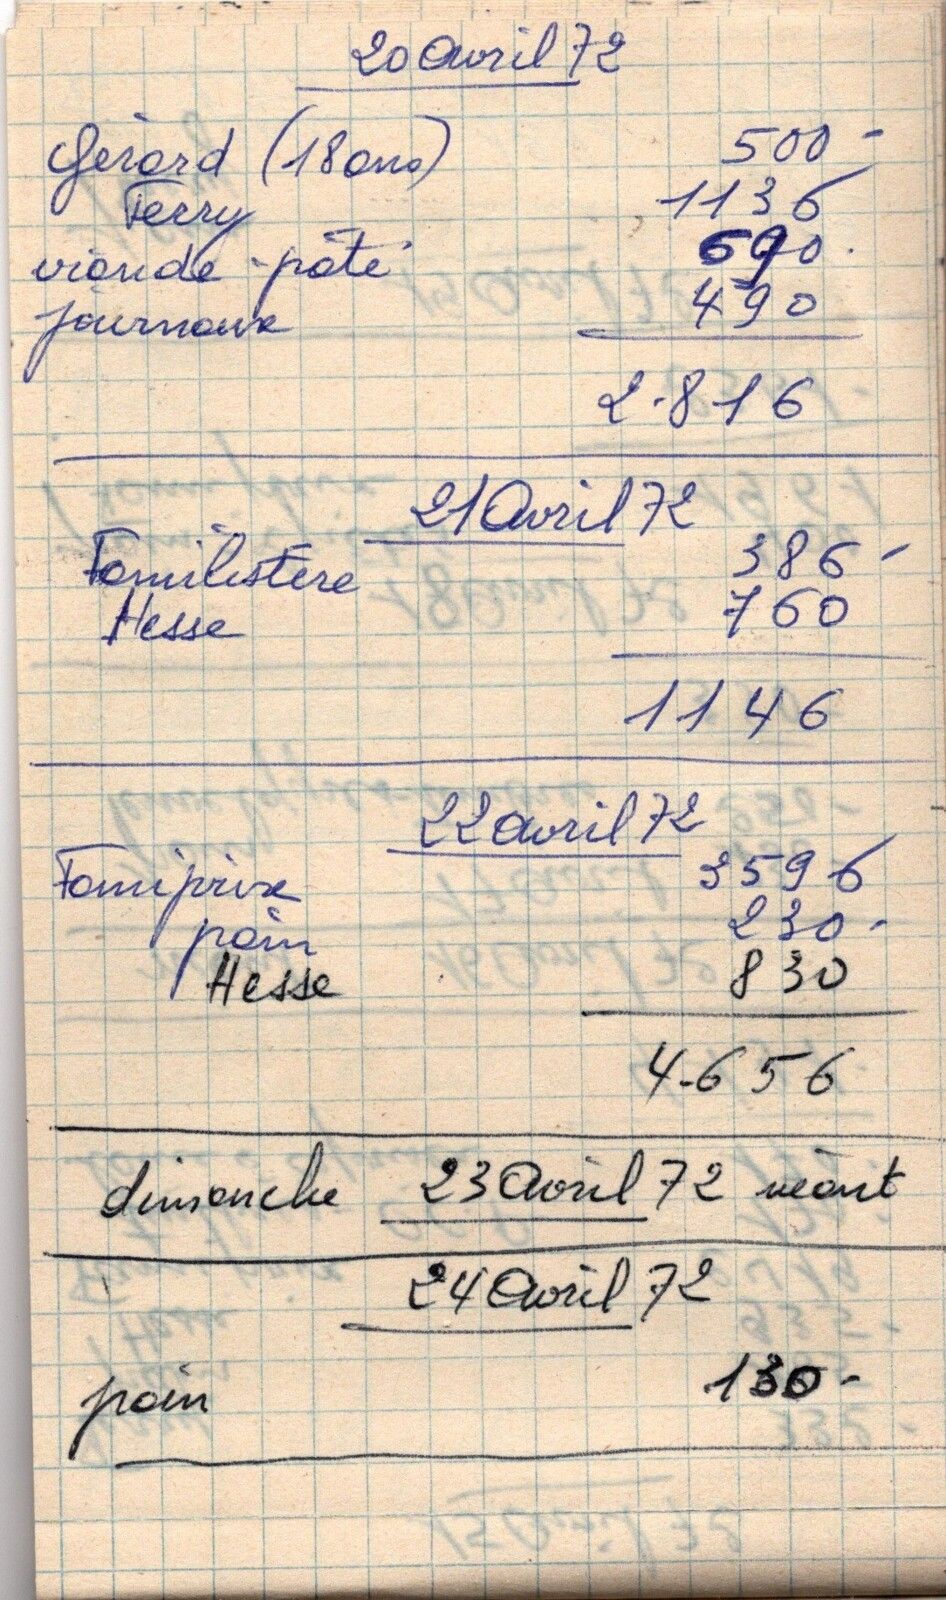 20 Avril 72
Gérard (18 ans) 500-
Ferry 1136
viande-pâté 690.
journaux 490
2.816
21 Avril 72
Familistere 386-
Hesse 760
1146
22 avril 72
Famiprix 3596
pain 230-
Hesse 830
4.656
dimanche 23 Avril 72 néant
24 Avril 72
pain 130-